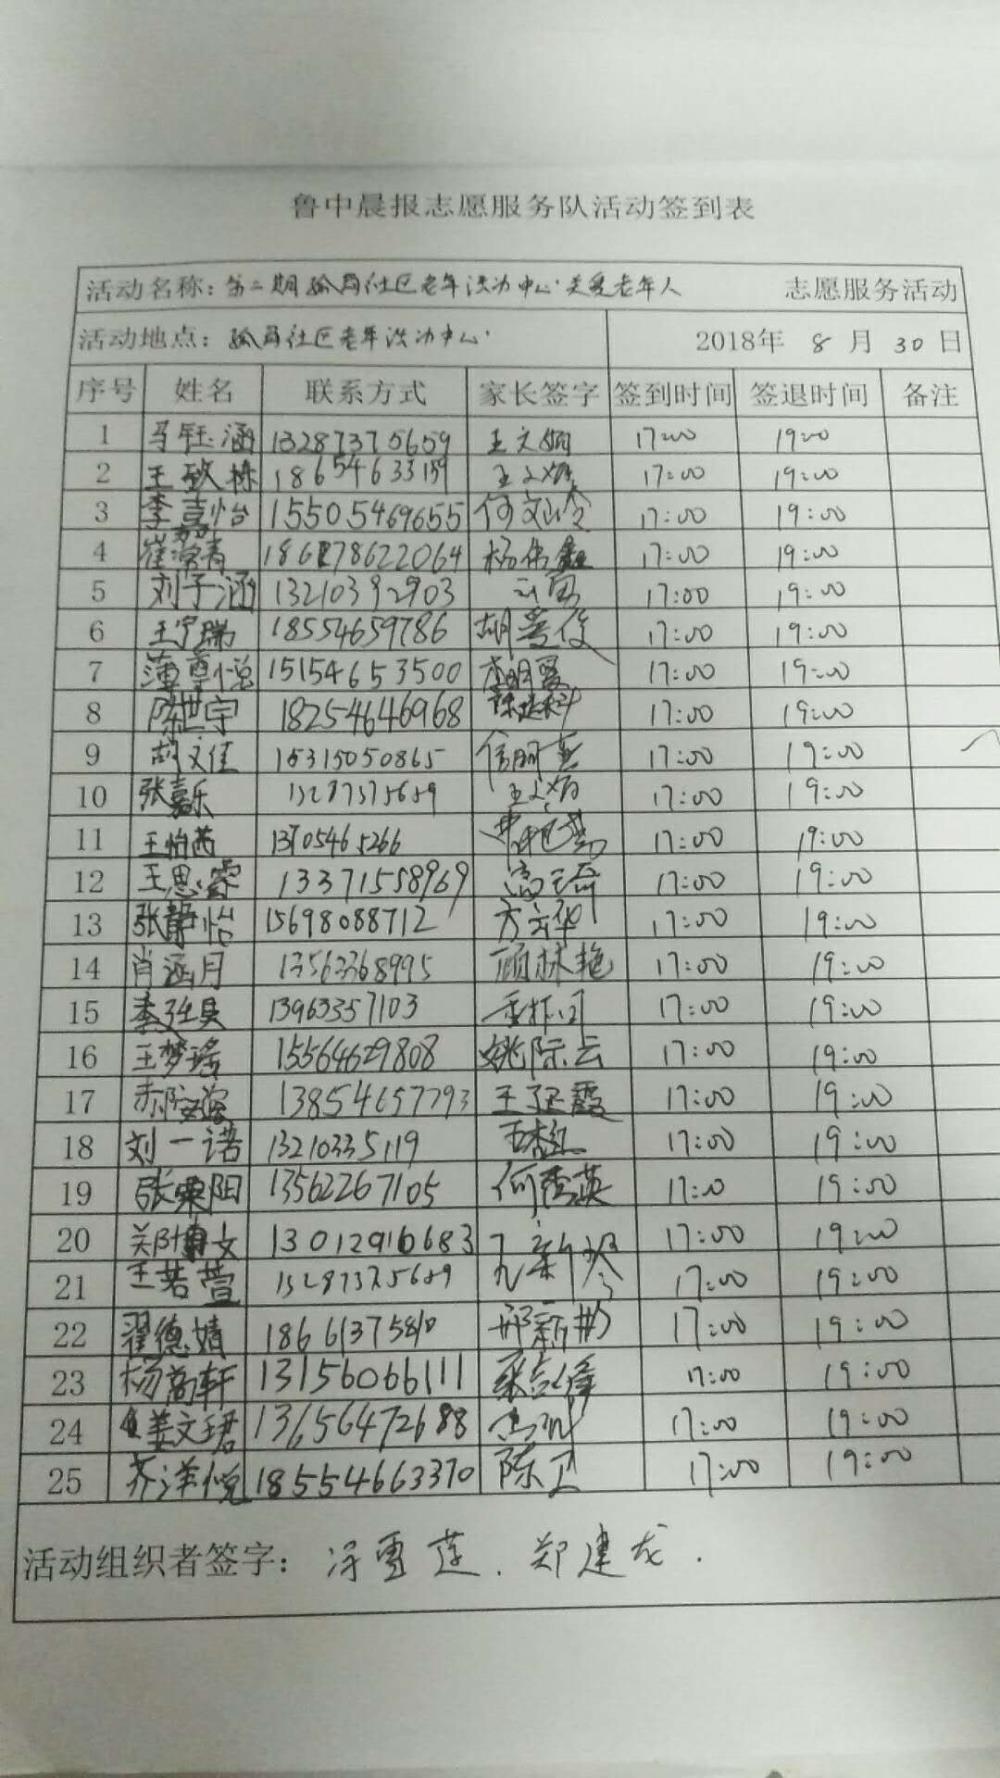 鲁中晨报志愿服务队活动签到表
活动名称：第二期 社区老年活动中心关爱老年人 志愿服务活动
活动地点： 社区老年活动中心 2018年 8 月 30 日
序号 姓名 联系方式 家长签字 签到时间 签退时间 备注
1 马钰涵 13287375659 王文娟 17:00 19:00
2 王致栋 18654633159 17:00 19:00
3 李嘉怡 15505469655 何文玲 17:00 19:00
4 崔滢青 杨伟鑫 17:00 19:00
5 刘子涵 13210392903 17:00 19:00
6 王宇瑞 18554659786 胡景俊 17:00 19:00
7 薄尊悦 15154653500 李明霞 17:00 19:00
8 陈世宇 18254646968 17:00 19:00
9 胡文佳 15315050865 信丽英 17:00 19:00
10 张嘉乐 13287375659 王文娟 17:00 19:00
11 王怡茜 13705465266 17:00 19:00
12 王思睿 13371558969 17:00 19:00
13 张静怡 15698088712 方立华 17:00 19:00
14 肖涵月 13563368995 顾林艳 17:00 19:00
15 13963357103 17:00 19:00
16 王梦瑶 15564629808 姚际云 17:00 19:00
17 13854657793 王延霞 17:00 19:00
18 刘一诺 13210335119 17:00 19:00
19 张栗阳 13562267105 何秀英 17:00 19:00
20 郑博文 13012910683 17:00 19:00
21 王若萱 13287375659 17:00 19:00
22 翟德婧 邢新 17:00 19:00
23 杨尚轩 13156066111 17:00 19:00
24 姜文珺 13656472688 17:00 19:00
25 齐洋悦 18554663370 陈卫 17:00 19:00
活动组织者签字： 冯雪莲．郑建龙．